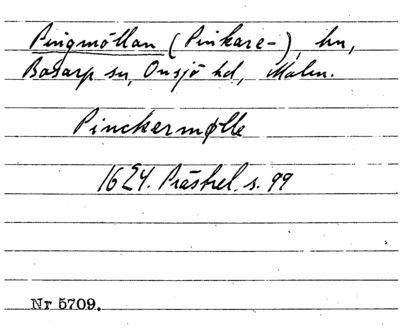 Pingmöllan (Pinkare-), hn,
Bosarp sn, Onsjö hd, Malm.
Pinckermølle
1624. Prästrel. s. 99
Nr 5709.